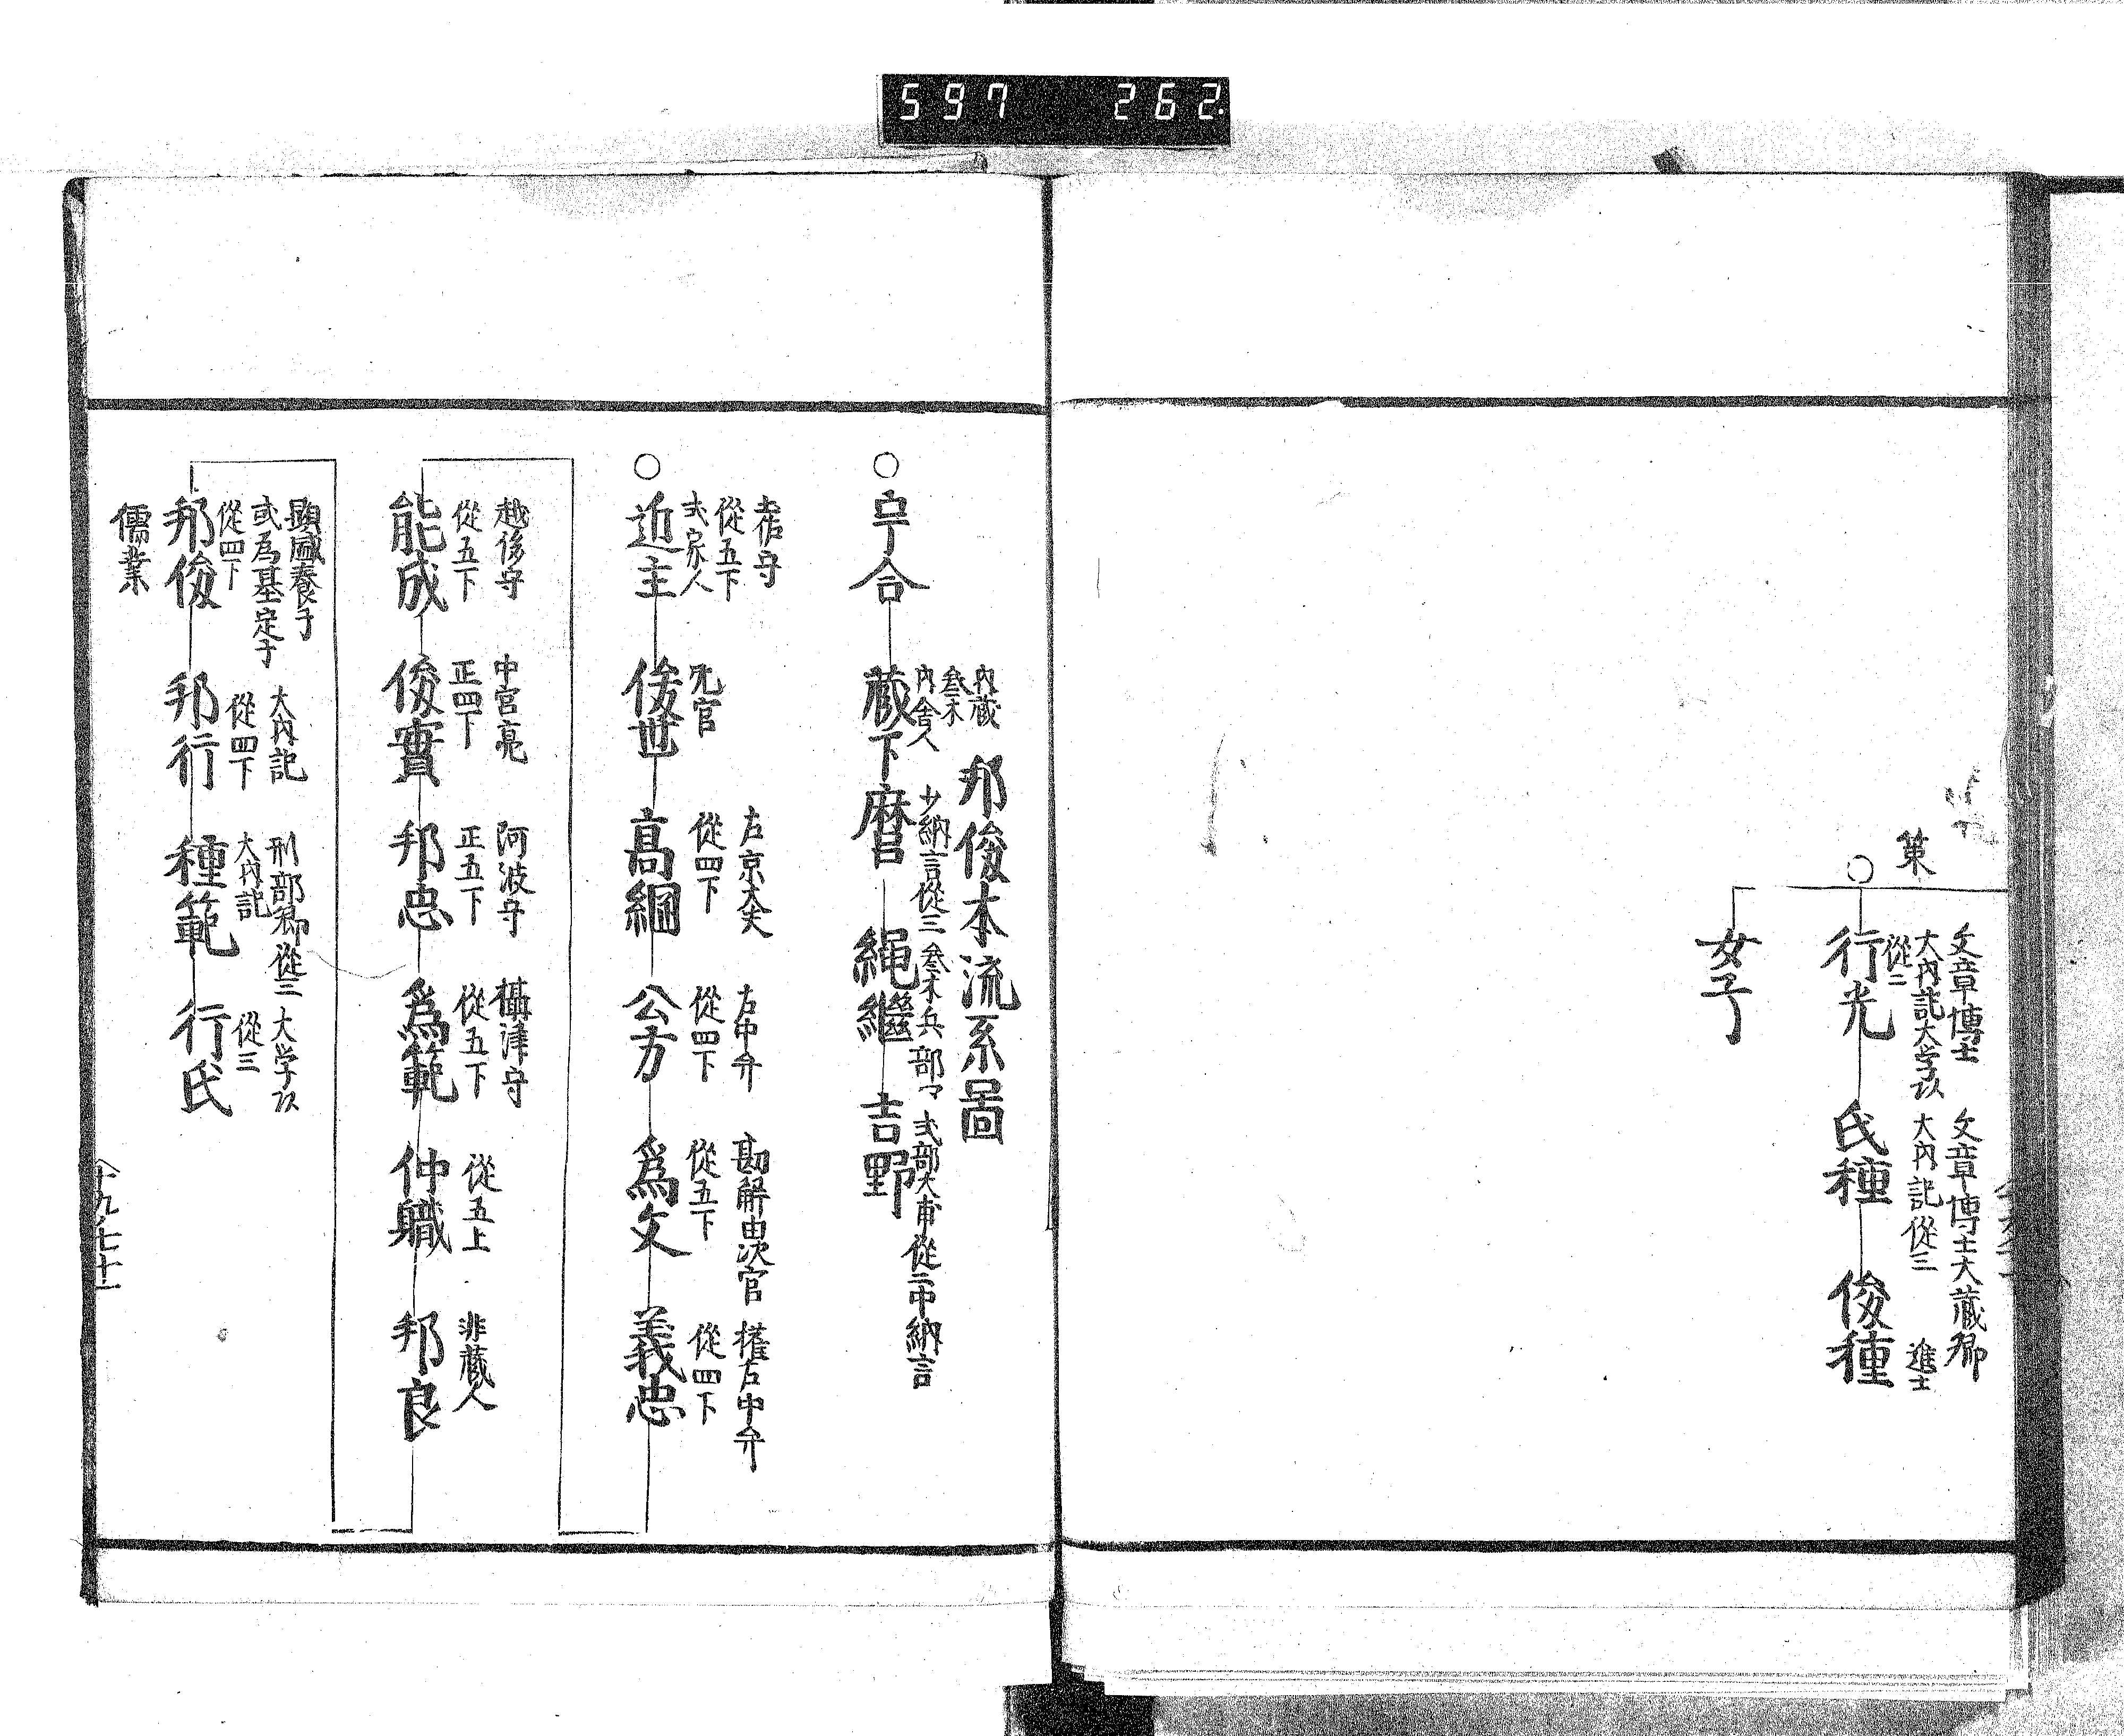 597 262
策
文章博士
大内記大学頭
従二
行光
文章博士大蔵卿
大内記従三
氏種
進士
俊種
女子
邦俊本流系圖
宇合
内蔵
参木
内舎人
蔵下麿
少納言従三参木兵部
縄継
式部大甫従三中納言
吉野
土佐守
従五下
式家人
近主
兄官
俊世
右京大夫
従四下
高綱
右中弁
従四下
公方
勘解由次官
従五下
為文
権右中弁
従四下
義忠
越後守
従五下
能成
中宮亮
正四下
俊實
阿波守
正五下
邦忠
攝津守
従五下
為範
従五上
仲職
非蔵人
邦良
顕盛養子
或為基定子
従四下
邦俊
儒業
大内記
従四下
邦行
刑部卿従二
大内記
種範
大学頭
従三
行氏
十九ノ七十一